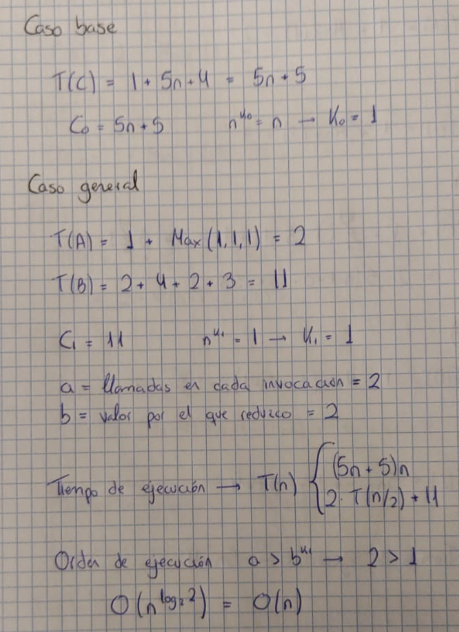 Caso base
T(C) = 1 + 5n + 4 = 5n + 5
C₀ = 5n + 5 n^k₀ = n → K₀ = 1
Caso general
T(A) = 1 + Max(1,1,1) = 2
T(B) = 2 + 4 + 2 + 3 = 11
C₁ = 11 n^k₁ = 1 → K₁ = 1
a = llamadas en cada invocación = 2
b = valor por el que reduzco = 2
Tiempo de ejecución → T(n) { (5n + 5)n
2 · T(n/2) + 11
Orden de ejecución a > b^k₁ → 2 > 1
O(n^log₂ 2) = O(n)